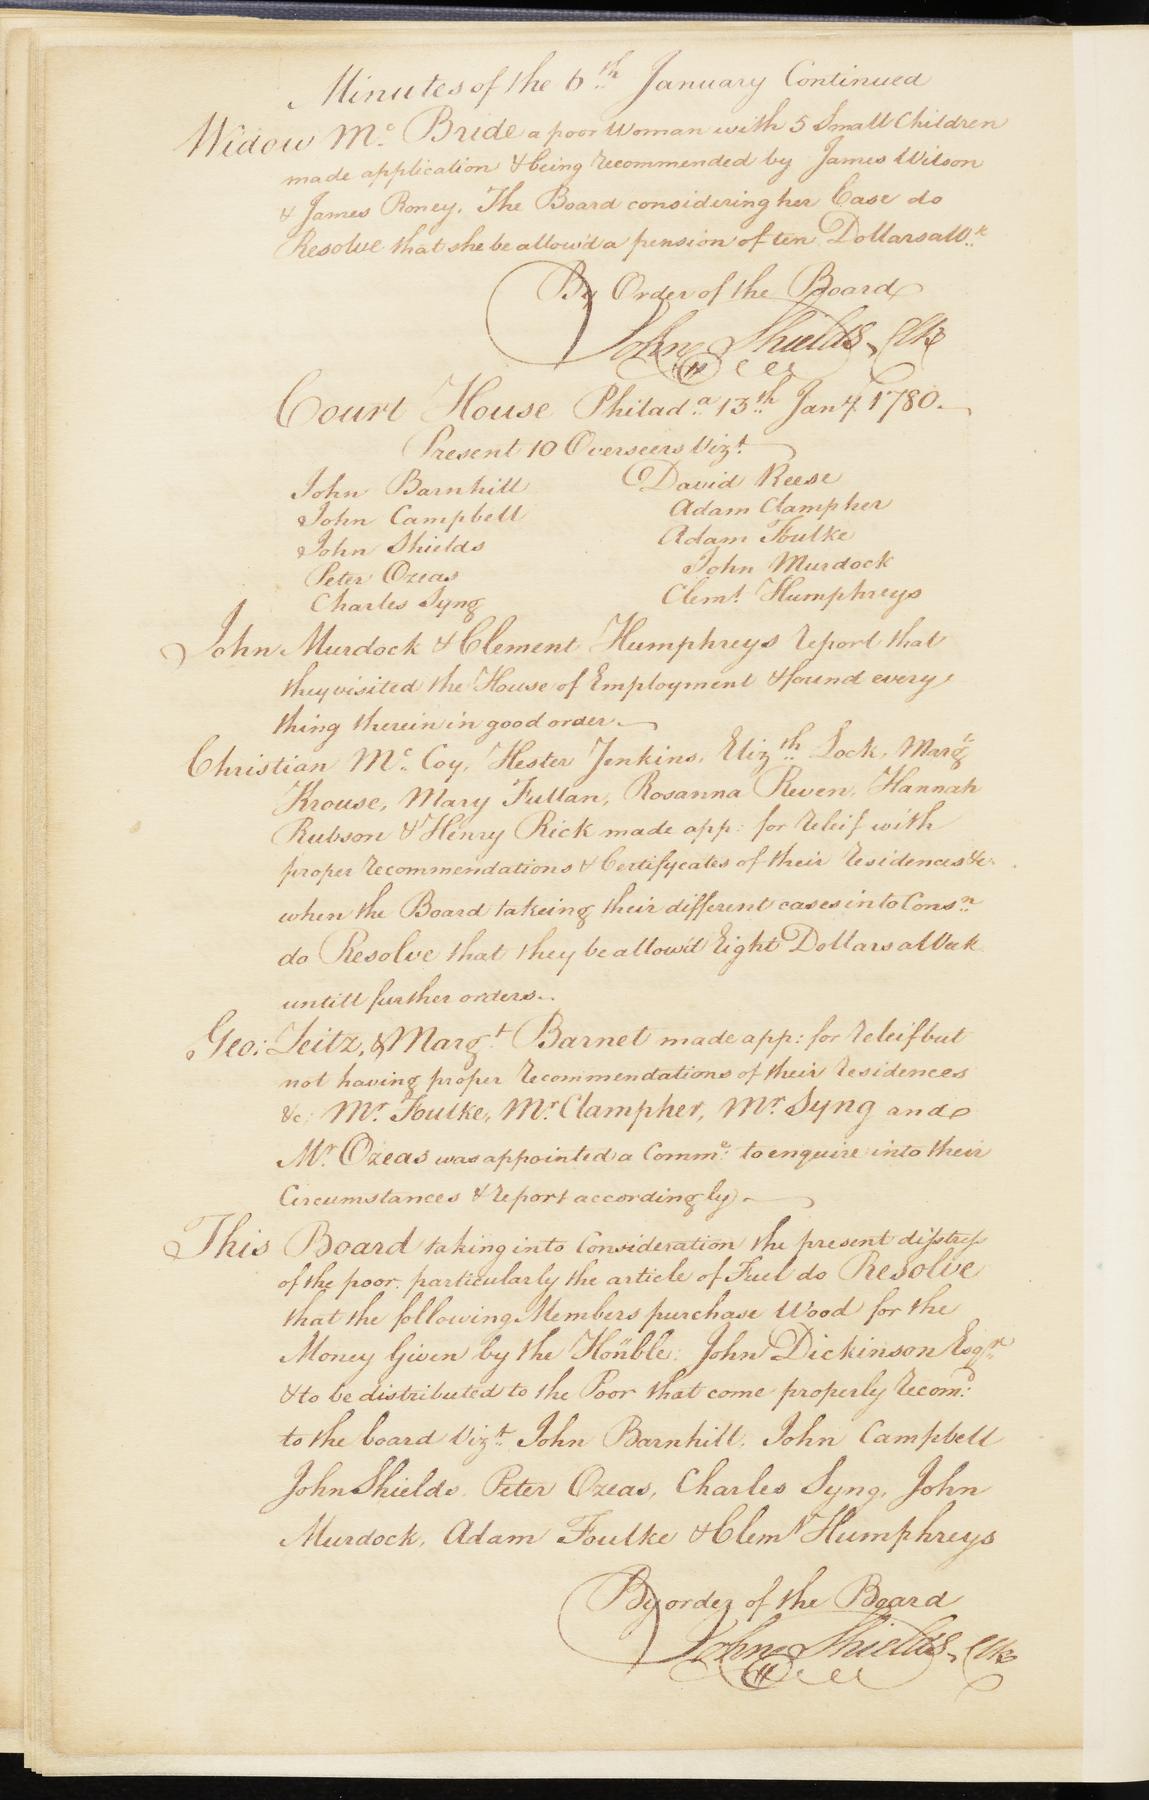 Minutes of the 6th January Continued
Widow Mc. Bride a poor Woman with 5 Small Children
made application & being recommended by James Wilson
& James Roney, The Board considering her Case do
Resolve that she be allow'd a pension of ten Dollars a Wk
By Order of the Board
John Shields, Clk
Court House Philada 13th Jany 1780.
Present 10 Overseers Vizt
John Barnhill David Reese
John Campbell Adam Clampher
John Shields Adam Foulke
Peter Ozeas John Murdock
Charles Syng Clemt Humphreys
John Murdock & Clement Humphreys report that
they visited the House of Employment & found every
thing therein in good order.
Christian Mc. Coy, Hester Jenkins, Elizth Lock, Margt
Krouse, Mary Fullan, Rosanna Reven, Hannah
Rubson & Henry Rick made app: for releif with
proper recommendations & Certifycates of their residences &c.
when the Board takeing their different cases into Consn
do Resolve that they be allow'd Eight Dollars a Week
untill further orders..
Geo: Leitz, & Margt Barnet made app: for releif but
not having proper recommendations of their residences
&c. Mr. Foulke, Mr. Clampher, Mr. Syng and
Mr. Ozeas was appointed a Comme: to enquire into their
Circumstances & report accordingly.
This Board taking into Consideration the present distress
of the poor, particularly the article of Fuel do Resolve
that the following Members purchase Wood for the
Money Given by the Honble: John Dickinson Esqr.
& to be distributed to the Poor that come properly recomd:
to the board Vizt. John Barnhill, John Campbell
John Shields, Peter Ozeas, Charles Syng, John
Murdock, Adam Foulke & Clemt Humphreys
By order of the Board
John Shields, Clk